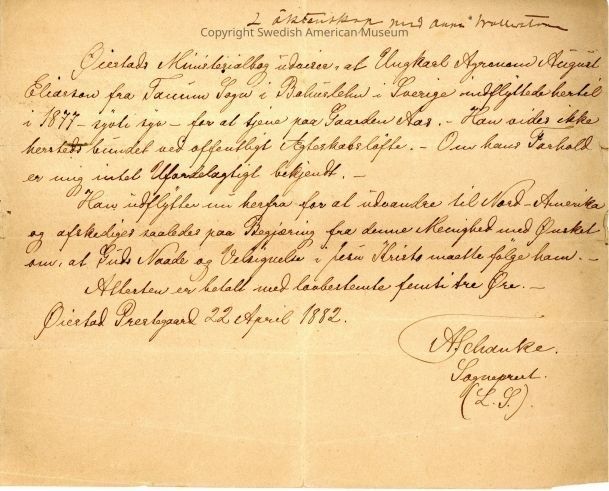 2 äktenskap med Anna Wallerstrom
Copyright Swedish American Museum
Øiestads Ministerialbog udviser, at Ungkarl Agronom August
Eliasson fra Tanum Sogn i Bohuslehn i Sverige indflyttede hertil
i 1877 - syti syv - for at tjene paa Gaarden Aas. - Han vides ikke
hersteds bundet ved offentligt Ægteskabsløfte. - Om hans Forhold
er mig intet Ufordelagtigt bekjendt. -
Han udflytter nu herfra for at udvandre til Nord-Amerika
og afskediges saaledes paa Begjæring fra denne Menighed med Ønsket
om, at Guds Naade og Velsignelse i Jesu Kristo maatte følge ham. -
Attesten er betalt med lovbestemte femti tre Øre. -
Øiestad Prestegaard 22 April 1882.
A. Schanke.
Sogneprest.
(L. S.).